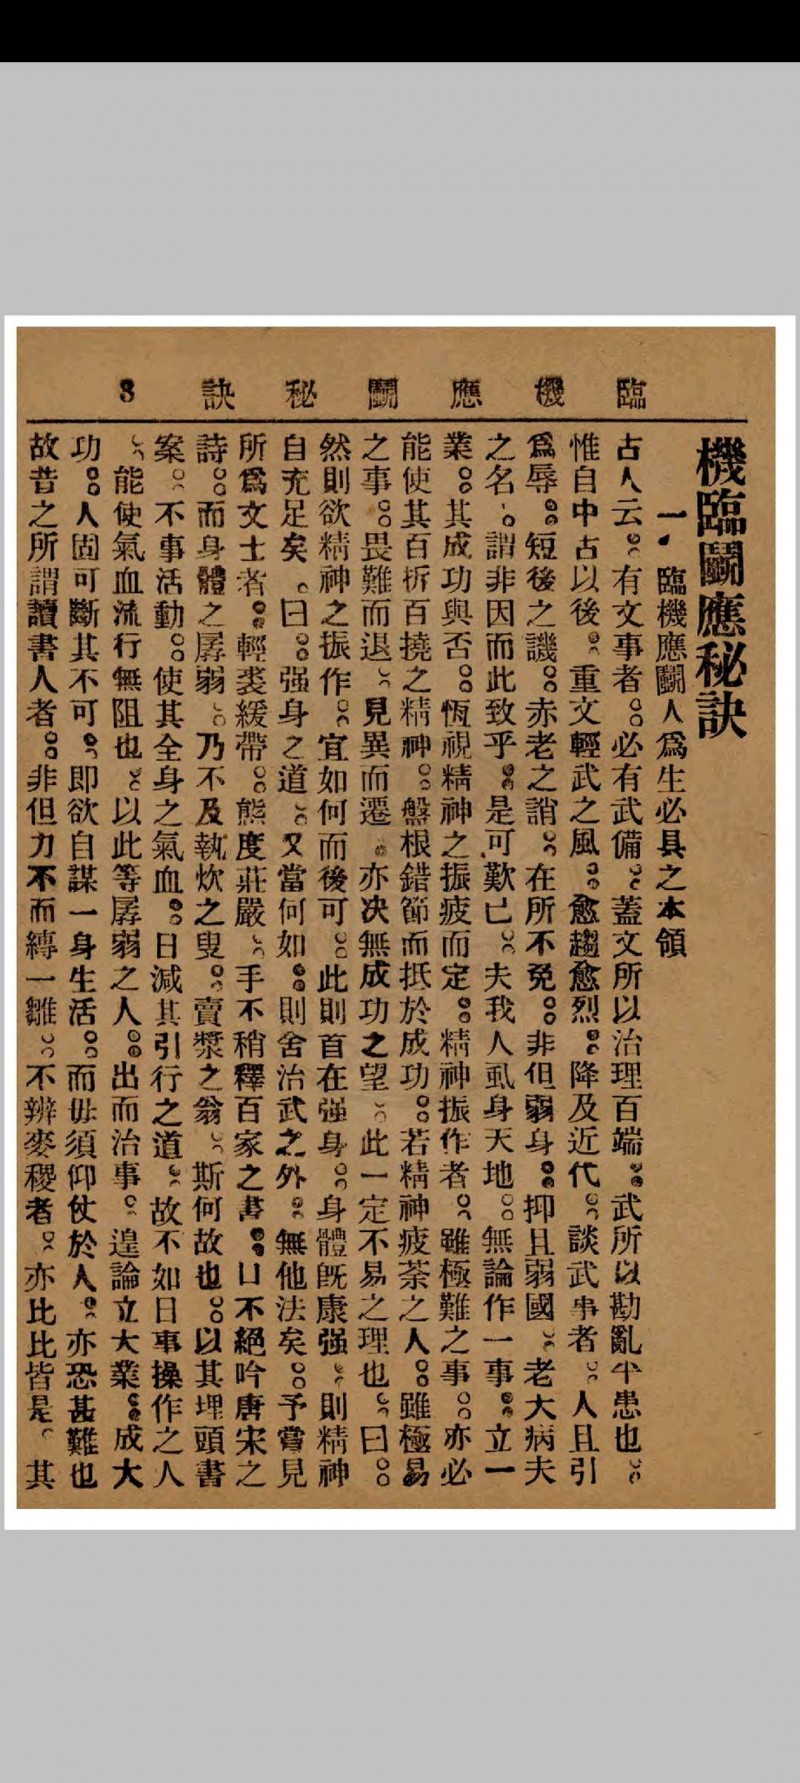 臨機應鬭秘訣 3
機臨鬭應秘訣
一．臨機應鬭人爲生必具之本領
古人云。有文事者。必有武備。蓋文所以治理百端。武所以勘亂平患也。
惟自中古以後。重文輕武之風。愈趨愈烈。降及近代。談武事者。人且引
爲辱。短後之譏。赤老之誚。在所不免。非但弱身。抑且弱國。老大病夫
之名。謂非因而此致乎。是可歎已。夫我人虱身天地。無論作一事。立一
業。其成功與否。恆視精神之振疲而定。精神振作者。雖極難之事。亦必
能使其百折百撓之精神。盤根錯節而抵於成功。若精神疲荼之人。雖極易
之事。畏難而退。見異而遷。亦决無成功之望。此一定不易之理也。曰。
然則欲精神之振作。宜如何而後可。此則首在强身。身體旣康强。則精神
自充足矣。曰。强身之道。又當何如。則舍治武之外。無他法矣。予嘗見
所爲文士者。輕裘緩帶。態度莊嚴。手不稍釋百家之書。口不絕吟唐宋之
詩。而身體之孱弱。乃不及執炊之叟。賣漿之翁。斯何故也。以其埋頭書
案。不事活動。使其全身之氣血。日減其引行之道。故不如日事操作之人
。能使氣血流行無阻也。以此等孱弱之人。出而治事。遑論立大業。成大
功。人固可斷其不可。即欲自謀一身生活。而毋須仰仗於人。亦恐甚難也
故昔之所謂讀書人者。非但力不而縛一雛。不辨麥稷者。亦比比皆是。其